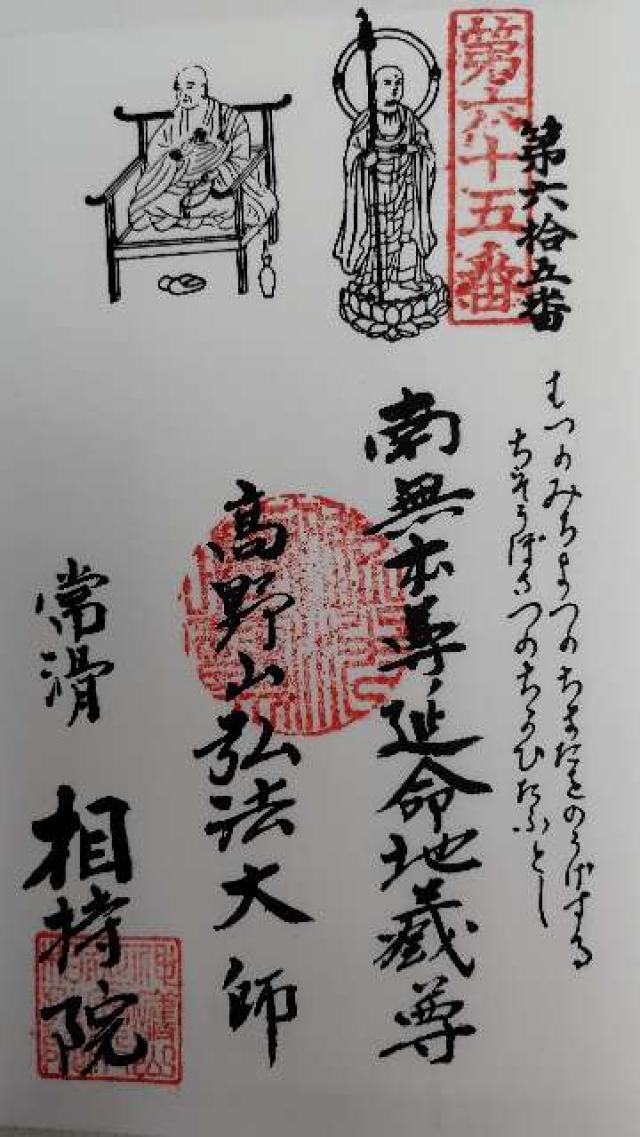 第六十五番
第六拾五番
むつのみちよつのちまたをのうげする
ちそうぼさつのちかひたふとし
南無本尊延命地蔵尊
高野山弘法大師
常滑 相持院